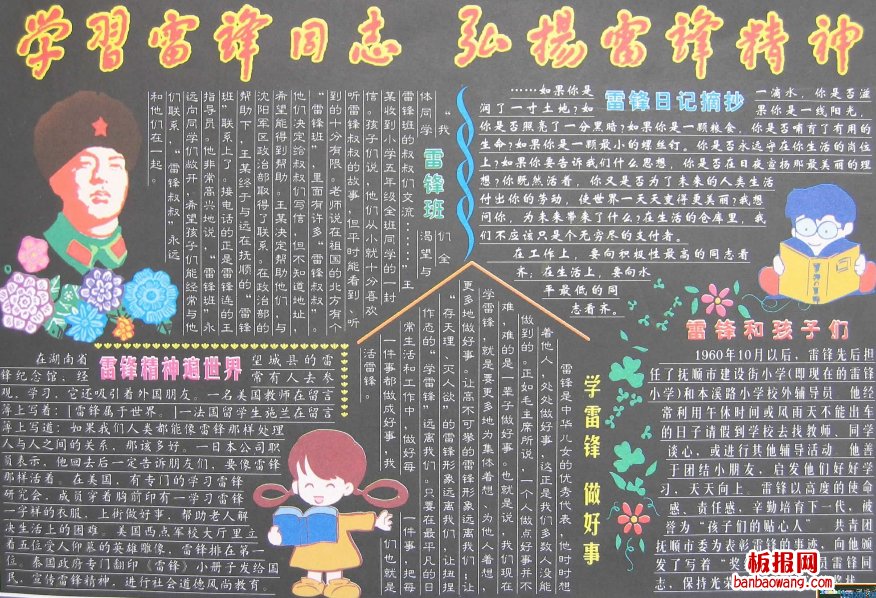 学習雷锋同志 弘揚雷锋精神
雷锋班
“我们全
体同学渴望与
雷锋班的叔叔们交流……”王
某收到小学五年级全班同学的一封
信。孩子们说，他们从小就十分喜欢
听雷锋叔叔的故事，但平时能看到、听
到的十分有限。老师说在祖国的北方有个
“雷锋班”，里面有许多“雷锋叔叔”。
他们决定给叔叔们写信，但不知道地址，
希望能得到帮助。王某决定帮助他们，与
沈阳军区政治部取得了联系。在政治部的
帮助下，王某终于与远在抚顺的“雷锋
班”联系上了。接电话的正是雷锋连的王
指导员。他非常高兴地说，“雷锋班”永
远向同学们敞开，希望孩子们能经常与他
们联系，“雷锋叔叔”永远
和他们在一起。
雷锋日记摘抄
……如果你是一滴水，你是否滋
润了一寸土地?如果你是一线阳光，
你是否照亮了一分黑暗?如果你是一颗粮食，你是否哺育了有用的
生命?如果你是一颗最小的螺丝钉。你是否永远守在你生活的岗位
上?如果你要告诉我们什么思想，你是否在日夜宣扬那最美丽的理
想?你既然活着，你又是否为了未来的人类生活
付出你的劳动，使世界一天天变得更美丽?我想
问你，为未来带来了什么?在生活的仓库里，我
们不应该只是个无穷尽的支付者。
在工作上，要向积极性最高的同志看
齐；在生活上，要向水
平最低的同
志看齐。
雷锋精神遍世界
在湖南省望城县的雷
锋纪念馆，经常有人去参
观、学习。它还吸引着外国朋友。一名美国教师在留言
薄上写着：[雷锋属于世界。]一法国留学生施兰在留言
薄上写道：如果我们人类都能像雷锋那样处理
人与人之间的关系，那该多好。一日本公司职
员表示，他回去后一定告诉朋友们，要像雷锋
那样活着。在美国，有专门的学习雷锋
研究会，成员穿着胸前印有一学习雷锋
一字样的衣服，上街做好事，帮助老人解
决生活上的困难。美国西点军校大厅里立
着五位受人仰慕的英雄雕像，雷锋排在第一
位。泰国政府专门翻印《雷锋》小册子发给国
民，宣传雷锋精神，进行社会道德风尚教育。
学雷锋 做好事
雷锋是中华儿女的优秀代表，他时时想
着他人，处处做好事，这正是我们多数人没能
做到的。正如毛主席所说，一个人做点好事并不
难，难的是一辈子做好事。也就是说，我们现在
学雷锋，就是要更多地为集体着想、为他人着想，
更多地做好事。让高不可攀的雷锋形象远离我们；让
“存天理、灭人欲”的雷锋形象远离我们；让扭捏
作态的“学雷锋”远离我们。只要在最平凡的日
常生活和工作中，做好每一件事，把每
一件事都做成好事，我们也就是
活雷锋。
雷锋和孩子们
1960年10月以后，雷锋先后担
任了抚顺市建设街小学(即现在的雷锋
小学)和本溪路小学校外辅导员 他经
常利用午休时间或风雨天不能出车
的日子请假到学校去找教师、同学
谈心，或进行其他辅导活动。他善
于团结小朋友，启发他们好好学
习，天天向上。雷锋以高度的使命
感、责任感，辛勤培育下一代，被
誉为“孩子们的贴心人” 共青团
抚顺市委为表彰雷锋的事迹，向他颁
发了写着“奖 员雷锋同
志，保持光荣
板报网
banbaowang.com